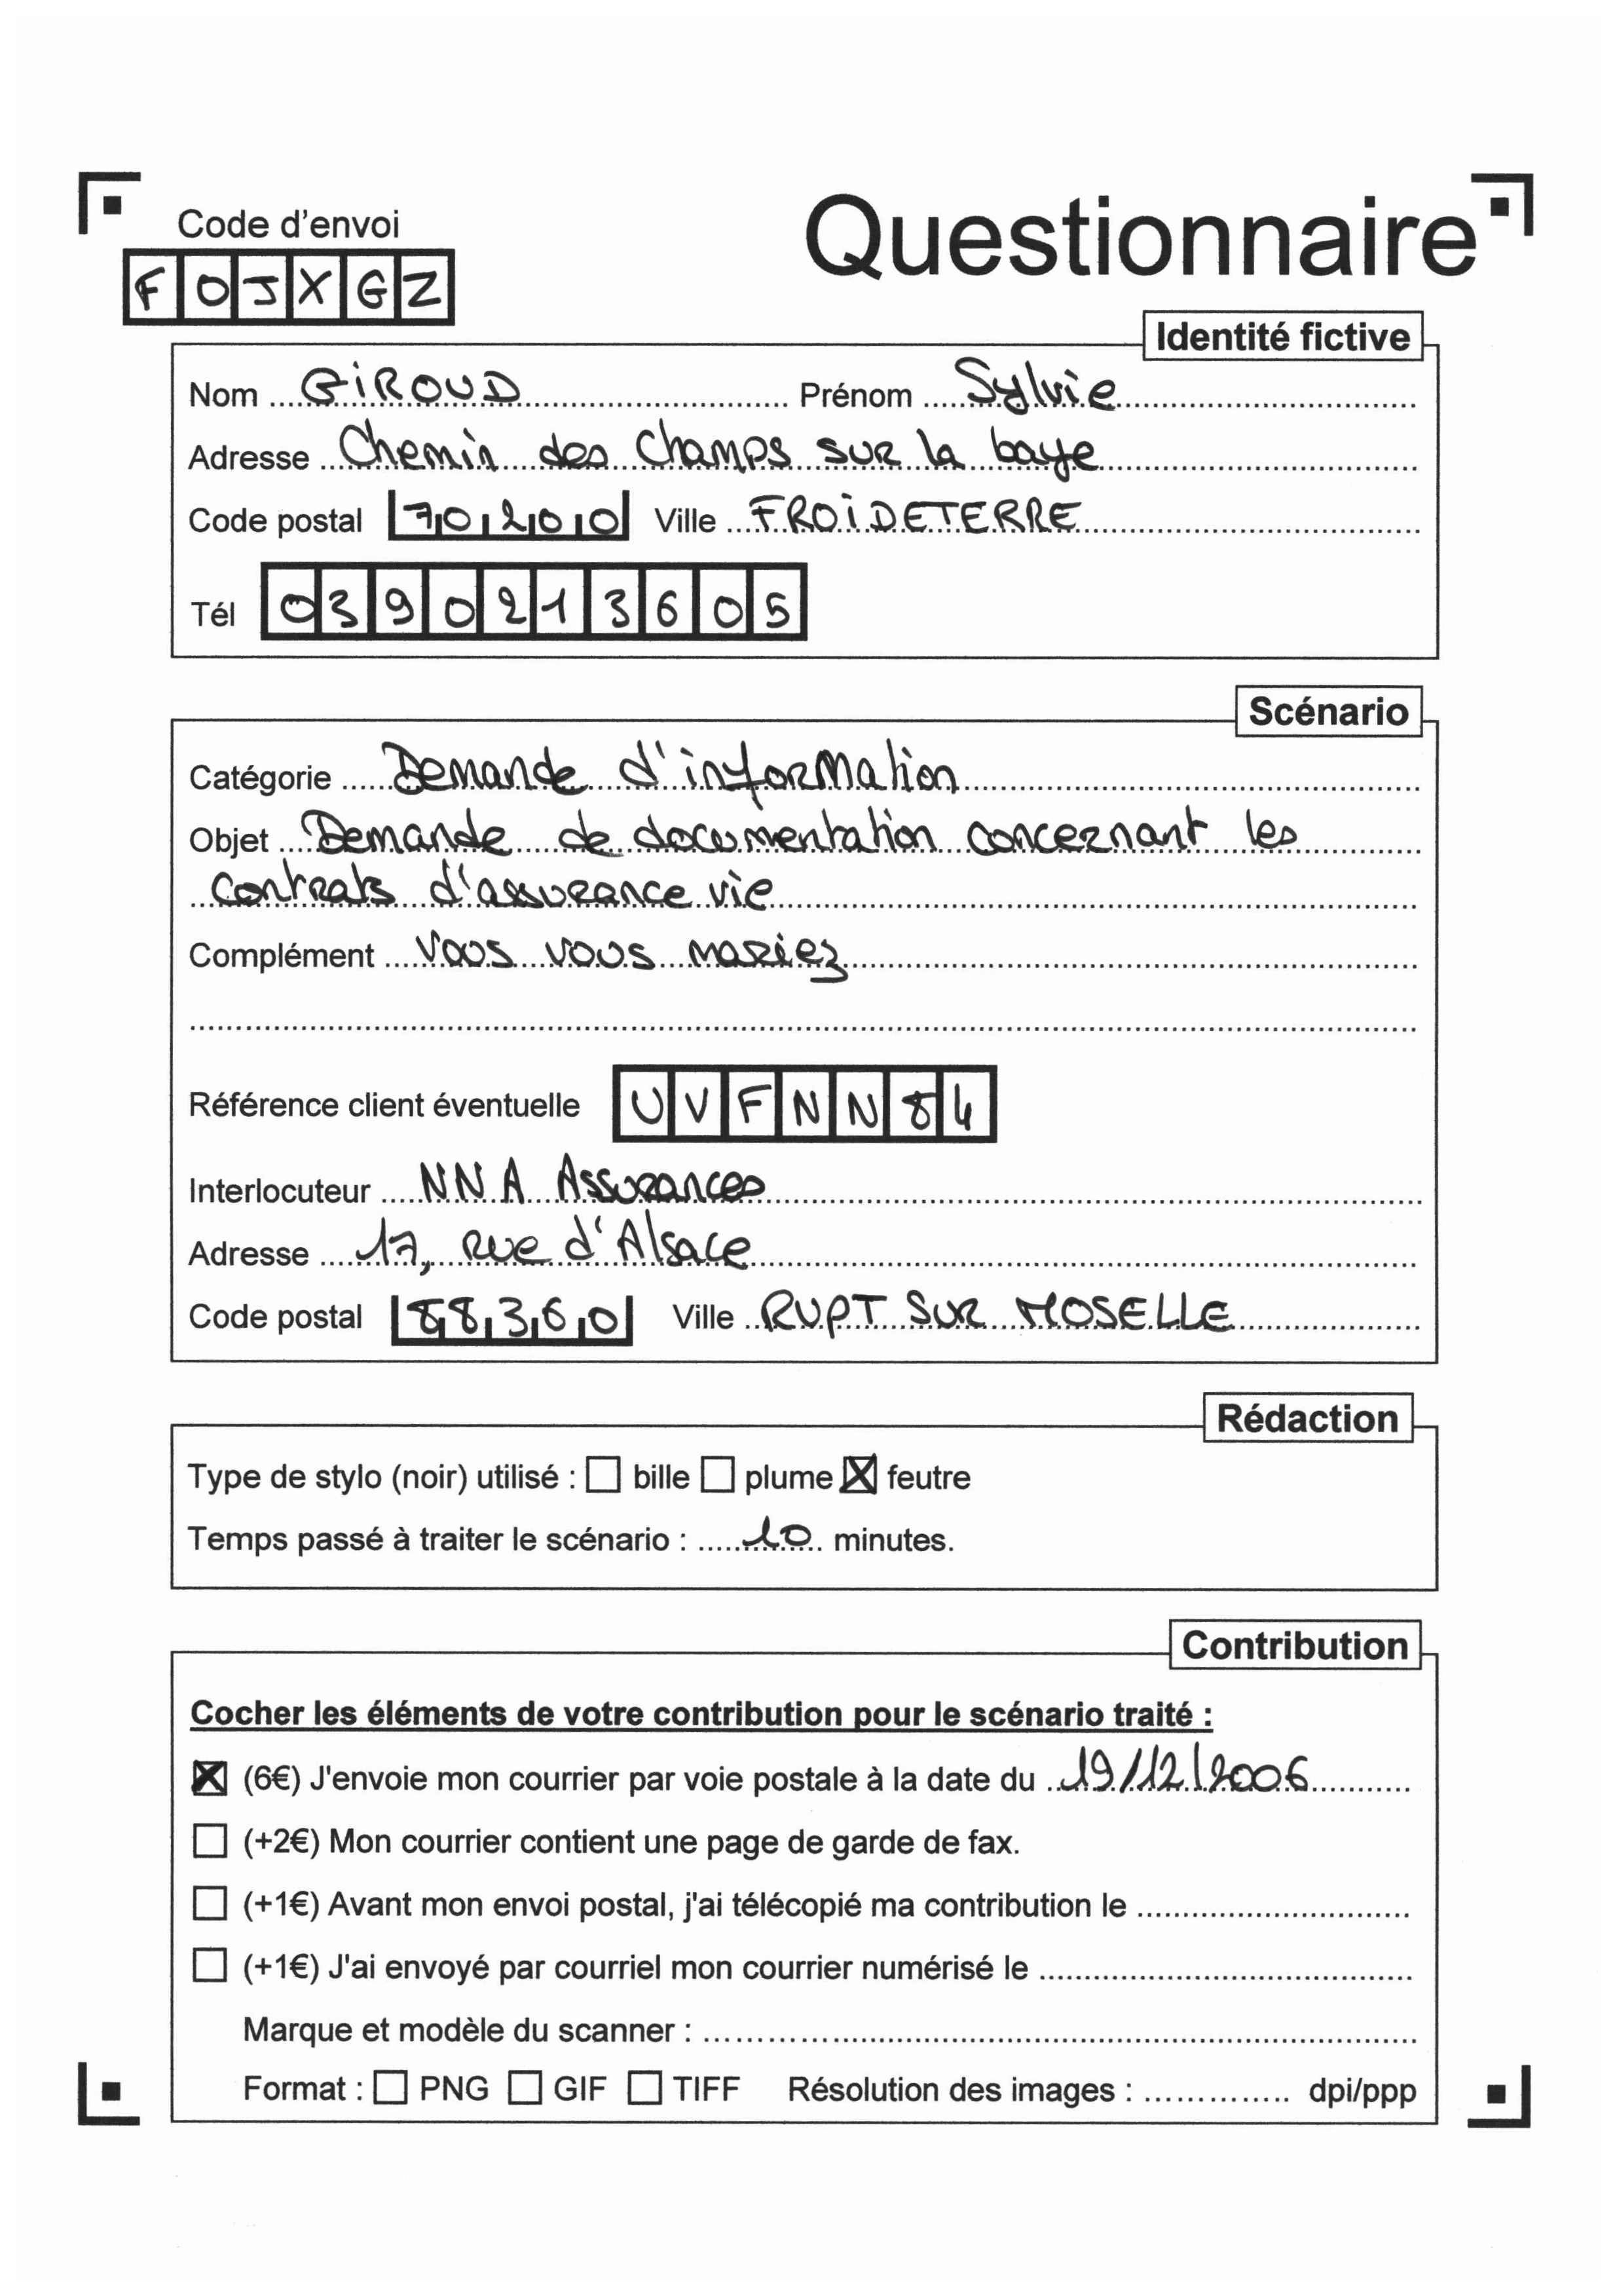 Code d'envoi
Questionnaire
FOJXGZ
Identité fictive
Nom GIROUD Prénom Sylvie
Adresse Chemin des Champs sur la baye
Code postal 70200 Ville FROIDETERRE
Tél 0390213605
Scénario
Catégorie Demande d'information
Objet Demande de documentation concernant les
contrats d'assurance vie
Complément Vous vous mariez
Référence client éventuelle UVFNN84
Interlocuteur NNA Assurances
Adresse 17, rue d'Alsace
Code postal 88360 Ville RUPT SUR MOSELLE
Rédaction
Type de stylo (noir) utilisé : ☐ bille ☐ plume ☒ feutre
Temps passé à traiter le scénario : 10 minutes.
Contribution
Cocher les éléments de votre contribution pour le scénario traité :
☒ (6€) J'envoie mon courrier par voie postale à la date du 19/12/2006
☐ (+2€) Mon courrier contient une page de garde de fax.
☐ (+1€) Avant mon envoi postal, j'ai télécopié ma contribution le
☐ (+1€) J'ai envoyé par courriel mon courrier numérisé le
Marque et modèle du scanner :
Format : ☐ PNG ☐ GIF ☐ TIFF Résolution des images : dpi/ppp